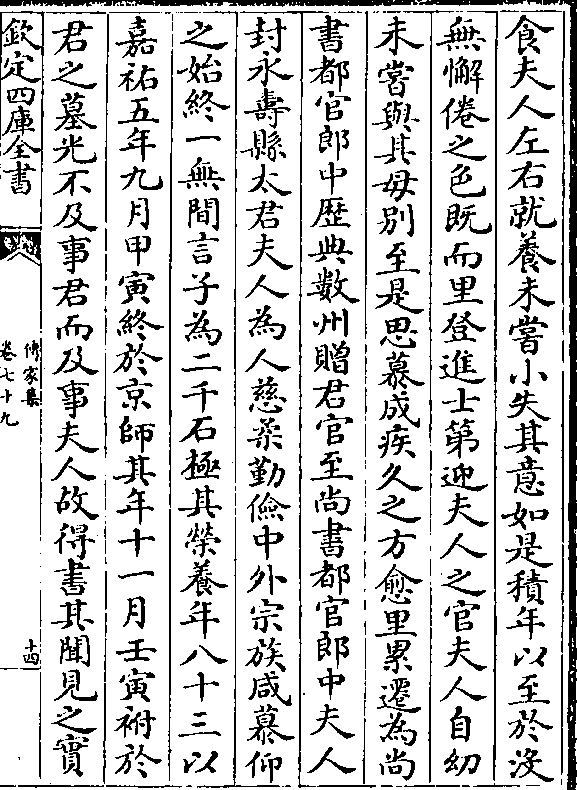 食夫人左右就養未嘗小失其意如是積年以至於没
無懈倦之色既而里登進士第迎夫人之官夫人自幼
未嘗與其母別至是思慕成疾久之方愈里累遷為尚
書都官郎中歴典數州贈君官至尚書都官郎中夫人
封永壽縣太君夫人為人慈柔勤儉中外宗族咸慕仰
之始終一無間言子為二千石極其榮養年八十三以
嘉祐五年九月甲寅終於京師其年十一月壬寅祔於
君之墓光不及事君而及事夫人故得書其聞見之實
欽定四庫全書
傳家集
卷七十九
十四